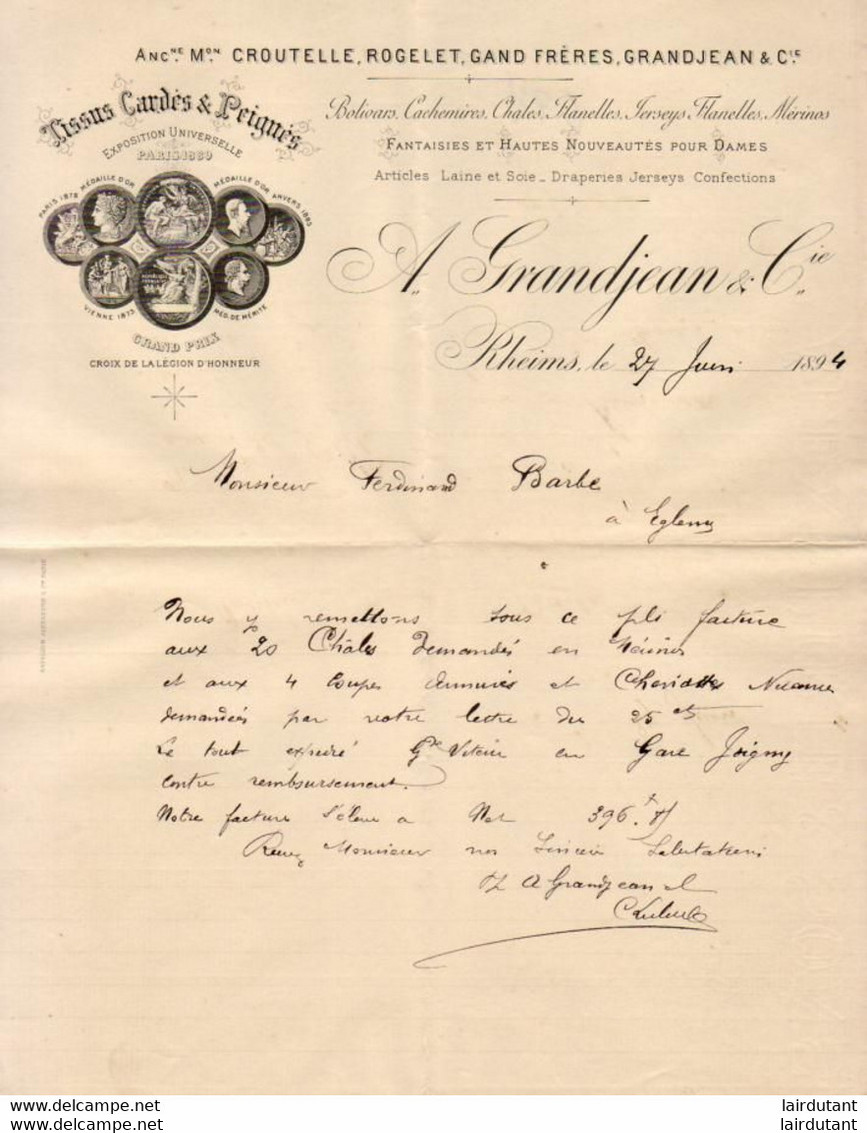 ANC.NE M.ON CROUTELLE, ROGELET, GAND FRÈRES, GRANDJEAN & CIE
Tissus Cardés & Peignés
EXPOSITION UNIVERSELLE
PARIS 1889
PARIS 1878 MÉDAILLE D'OR MÉDAILLE D'OR ANVERS 1885
VIENNE 1873 MED. DE MÉRITE
GRAND PRIX
CROIX DE LA LÉGION D'HONNEUR
Bolivars, Cachemires, Chales, Flanelles, Jerseys Flanelles, Mérinos
FANTAISIES ET HAUTES NOUVEAUTÉS POUR DAMES
Articles Laine et Soie _ Draperies Jerseys Confections
A. Grandjean & Cie
Rheims, le 27 Juin 1894
Monsieur Ferdinand Barbe
à
Nous y remettons sous ce pli facture
aux 20 Châles demandés en Mérinos
et aux 4 coupes et
demandées par votre lettre du 25 ct
Le tout expedié Gde Vitesse en Gare Joigny
contre remboursement.
Notre facture s'élève a Net 396.
Recevez Monsieur nos Sincères Salutations
A Grandjean
lairdutant lairdutant
lairdutant